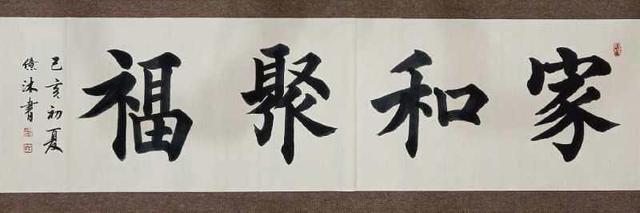 家和聚福
己亥初夏
沐書